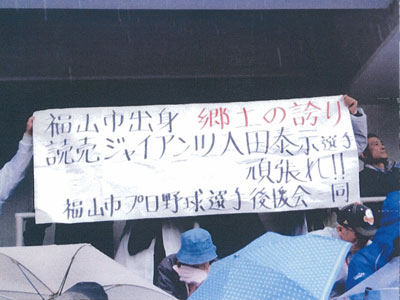 福山市出身 郷土の誇り
読売ジャイアンツ入田泰示選手
頑張れ!!
福山市プロ野球選手後援会一同